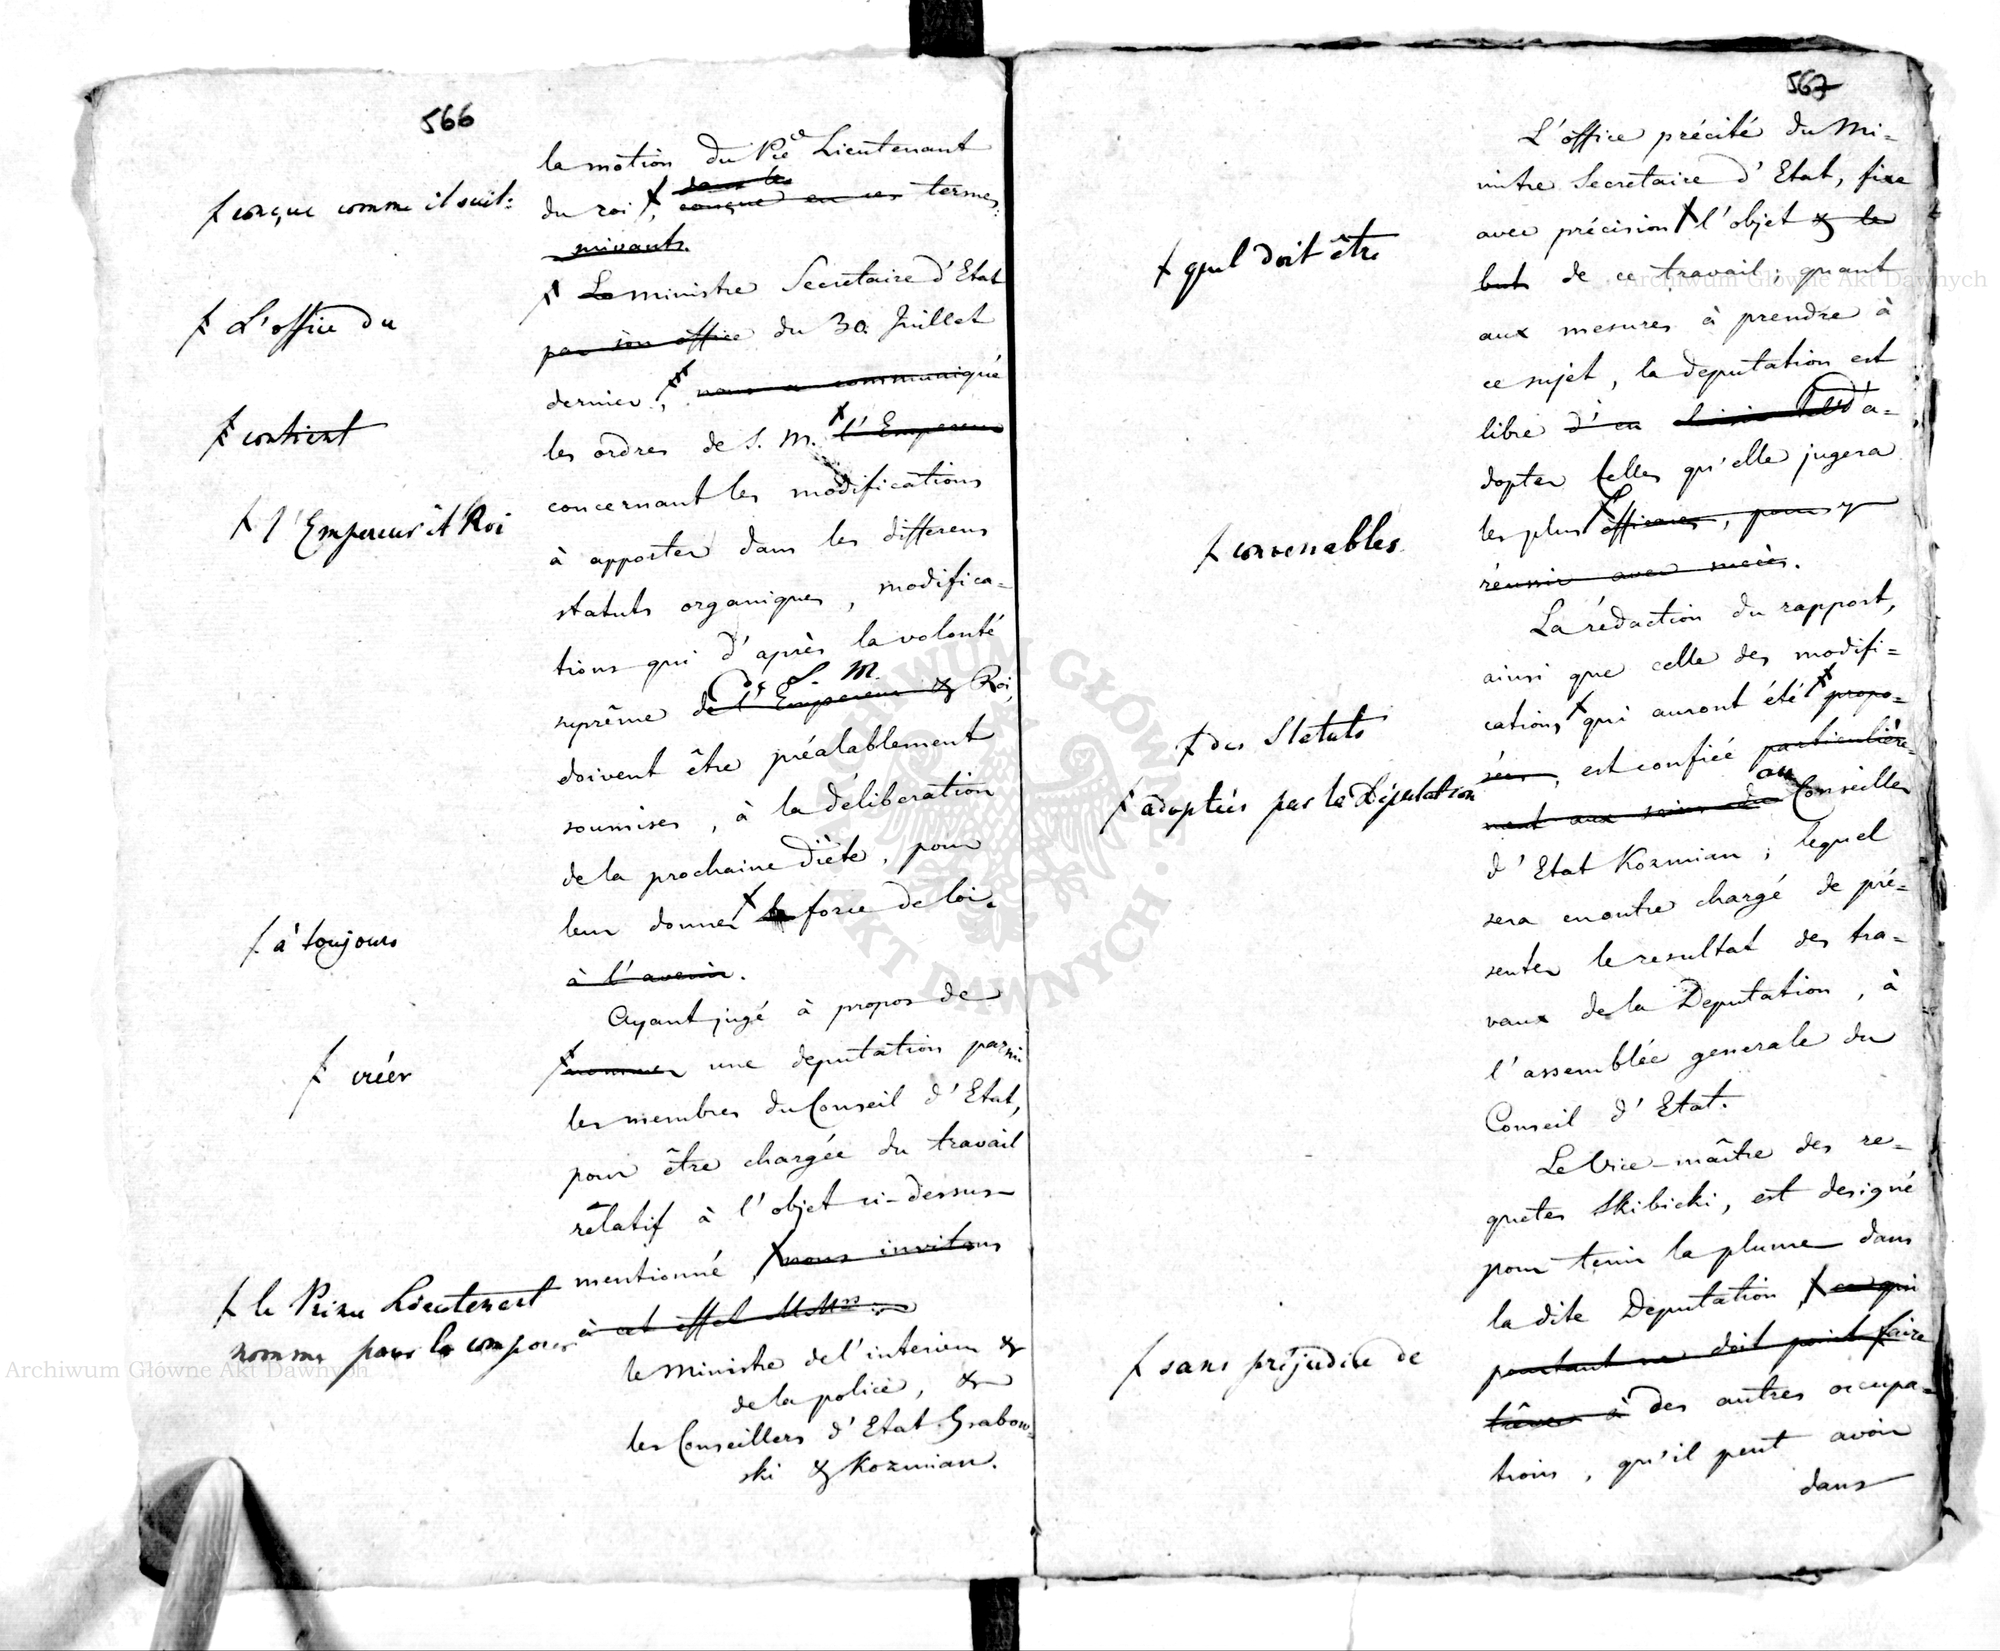 566
la motion du Pce Lieutenant
ꝉ conçue comme il suit:
dans les
du roi, conçue en ces termes:
suivants.
ꝉ L'office du
Le ministre Secretaire d'Etat
par son office du 30. Juillet
dernier, nous a communiqué
ꝉ contient
les ordres de S. M. l'Empereur
ꝉ l'Empereur et Roi
concernant les modifications
à apporter dans les differens
statuts organiques, modifica=
tions qui d'après la volonté
de S. M.
suprême de l'Empereur & Roi,
doivent être préalablement
soumises, à la déliberation
de la prochaine diète, pour
leur donner la force de loi.
ꝉ à toujours
à l'avenir.
Ayant jugé à propos de
ꝉ créer
nommer une deputation parmi
les membres du Conseil d'Etat,
pour être chargée du travail
rélatif à l'objet ci-dessus
mentionné nous invitons
ꝉ le Prince Lieutenant
nomme pour la composer
à cet effet MMrs.
le Ministre de l'interieur &
de la police, &
les Conseillers d'Etat Grabow=
ski & Kozmian.
567
L'office précité du Mi=
nistre Secretaire d'Etat, fixe
avec précision l'objet & le
ꝉ quel doit être
but de ce travail; quant
aux mesures à prendre à
ce sujet, la deputation est
libre d'en d'a=
dopter telles qu'elle jugera
les plus efficaces, pour y
ꝉ convenables.
réussir avec succès.
La rédaction du rapport,
ainsi que celle des modifi=
cations qui auront été propo=
ꝉ des Statuts
sées, est confiée particulière=
ꝉ adoptées par la Députation
au
ment aux soins du Conseiller
d'Etat Kozmian; lequel
sera en outre chargé de pré=
senter le resultat des tra=
vaux de la Deputation, à
l'assemblée generale du
Conseil d'Etat.
Le Vice-maître des re=
quetes Skibicki, est designé
pour tenir la plume dans
la dite Deputation, ce qui
pourtant ne doit point faire
ꝉ sans préjudice de
trêve à des autres occupa=
tions, qu'il peut avoir
dans
Archiwum Główne Akt Dawnych
Archiwum Główne Akt Dawnych
ARCHIWUM GŁÓWNE AKT DAWNYCH